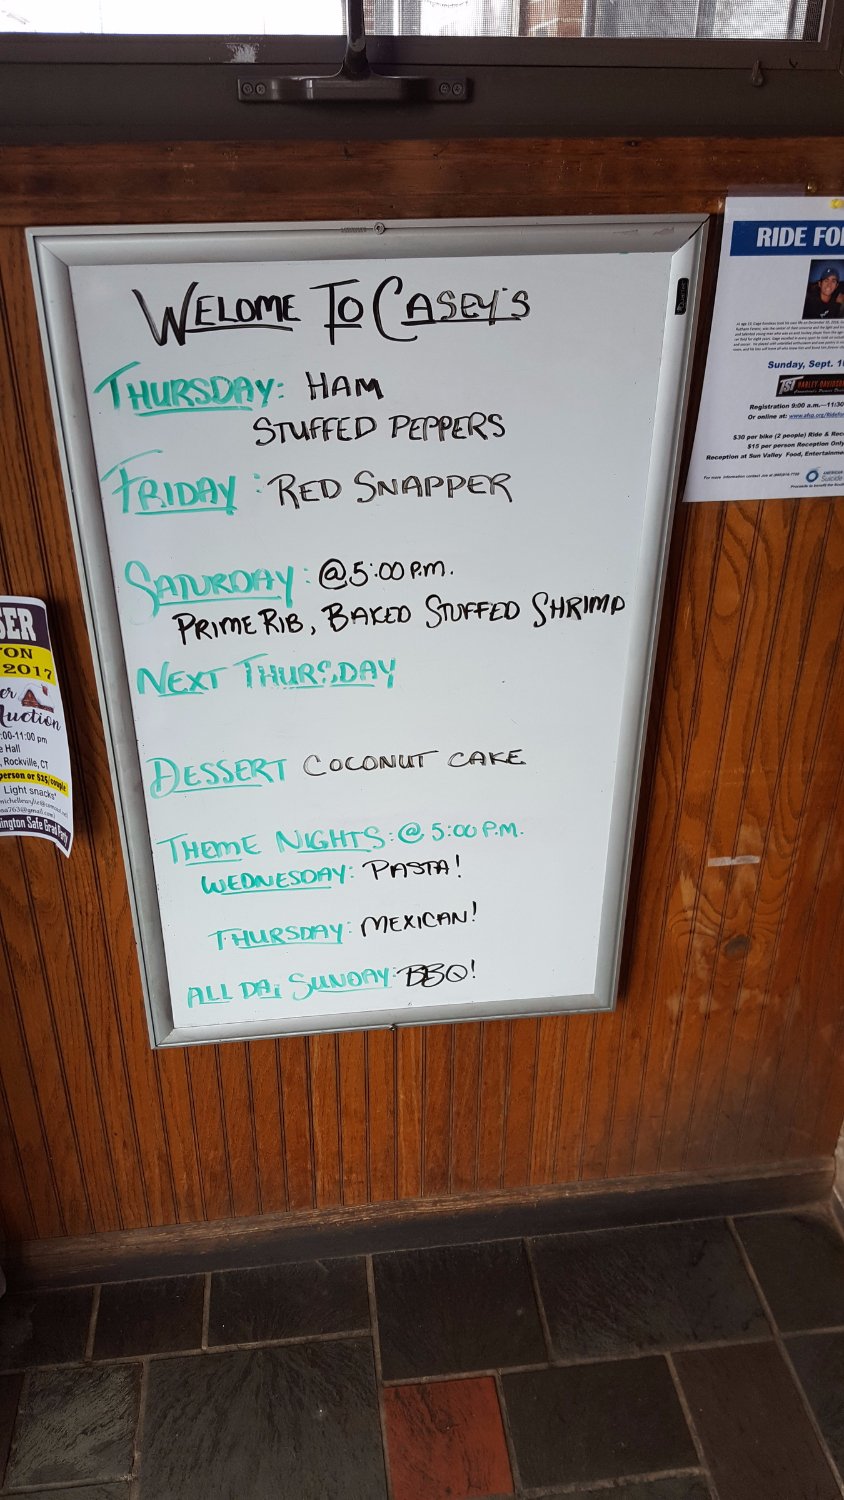 WELOME TO CASEY'S
THURSDAY: HAM
STUFFED PEPPERS
FRIDAY: RED SNAPPER
SATURDAY: @5:00 P.M.
PRIME RIB, BAKED STUFFED SHRIMP
NEXT THURSDAY
DESSERT COCONUT CAKE
THEME NIGHTS: @ 5:00 P.M.
WEDNESDAY: PASTA!
THURSDAY: MEXICAN!
ALL DAi SUNDAY: BBQ!
RIDE FO
Sunday, Sept. 1
TST HARLEY-DAVIDSO
Registration 9:00 a.m.—11:30
Or online at: www.afsp.org/Ridefo
$30 per bike (2 people) Ride & Rec
$15 per person Reception Only
Reception at Sun Valley Food, Entertainme
AMERICAN
Suicide
SER
ON
2017
er
Auction
:00-11:00 pm
e Hall
, Rockville, CT
person or $25/couple
Light snacks*
ington Safe Grad Party